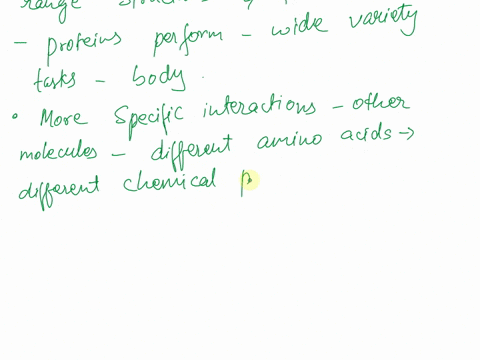 range
- proteins perform - wide variety
tasks - body.
• More specific interactions - other
molecules - different amino acids →
different chemical p